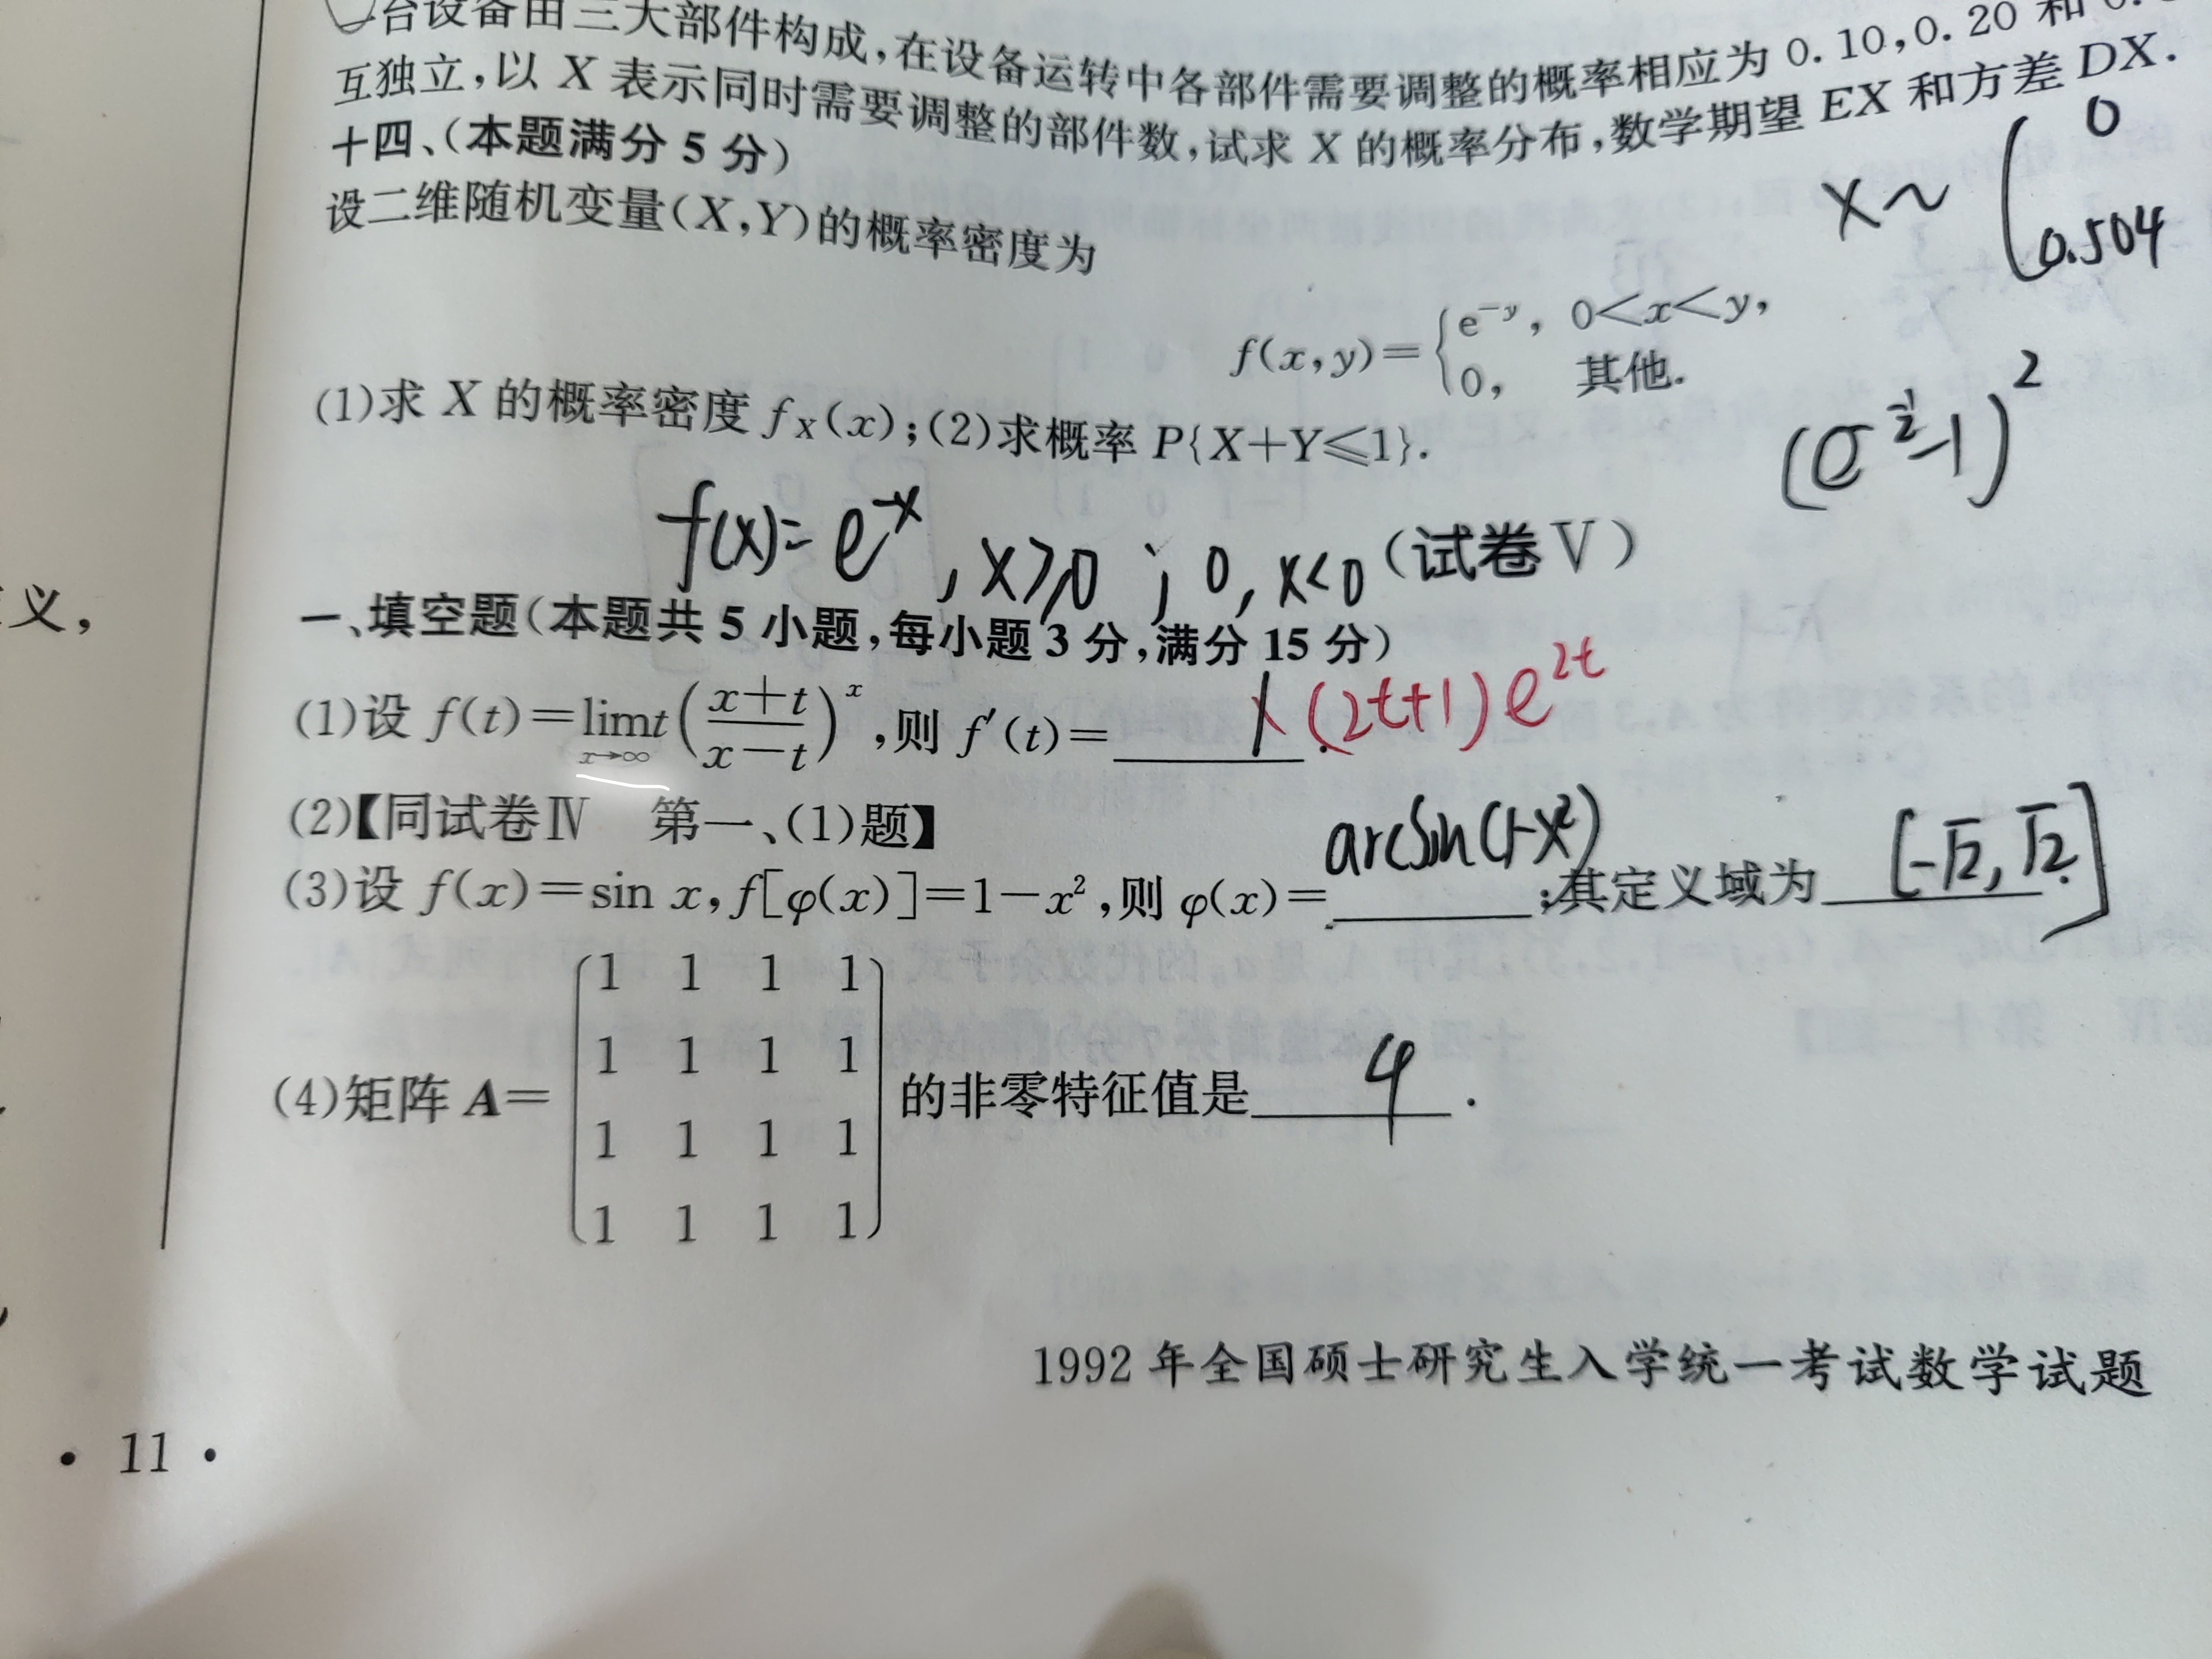 台设备由三大部件构成,在设备运转中各部件需要调整的概率相应为 0.10,0.20 和
互独立,以 X 表示同时需要调整的部件数,试求 X 的概率分布,数学期望 EX 和方差 DX.
十四、(本题满分 5 分)
X~(0
0.504
设二维随机变量(X,Y)的概率密度为
f(x,y)={e^{-y}, 0<x<y,
0, 其他.
(1)求 X 的概率密度 f_X(x);(2)求概率 P{X+Y≤1}.
(e^{-1/2}-1)^2
f(x)=e^{-x}, x≥0 ; 0, x<0
(试卷Ⅴ)
一、填空题(本题共 5 小题,每小题 3 分,满分 15 分)
(1)设 f(t)=lim_{x→∞} t((x+t)/(x-t))^x,则 f′(t)=______. (2t+1)e^{2t}
(2)【同试卷Ⅳ 第一、(1)题】
(3)设 f(x)=sin x,f[φ(x)]=1-x²,则 φ(x)= arcsin(1-x²) ;其定义域为 [-√2,√2].
(4)矩阵 A=
1 1 1 1
1 1 1 1
1 1 1 1
1 1 1 1
的非零特征值是 4 .
1992 年全国硕士研究生入学统一考试数学试题
· 11 ·
义,